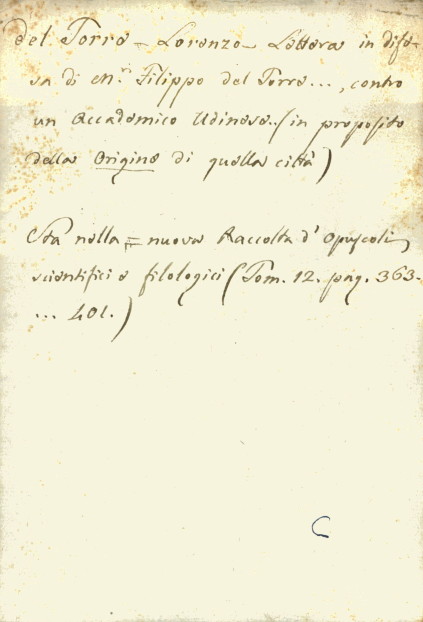 del Torre = Lorenzo = Lettera in dife-
sa di M.r Filippo del Torre..., contro
un Accademico Udinese..(in proposito
della Origine di quella città)
Sta nella = nuova Raccolta d'Opuscoli
scientifici e filologici (Tom. 12. pag. 363.
... 401.)
C